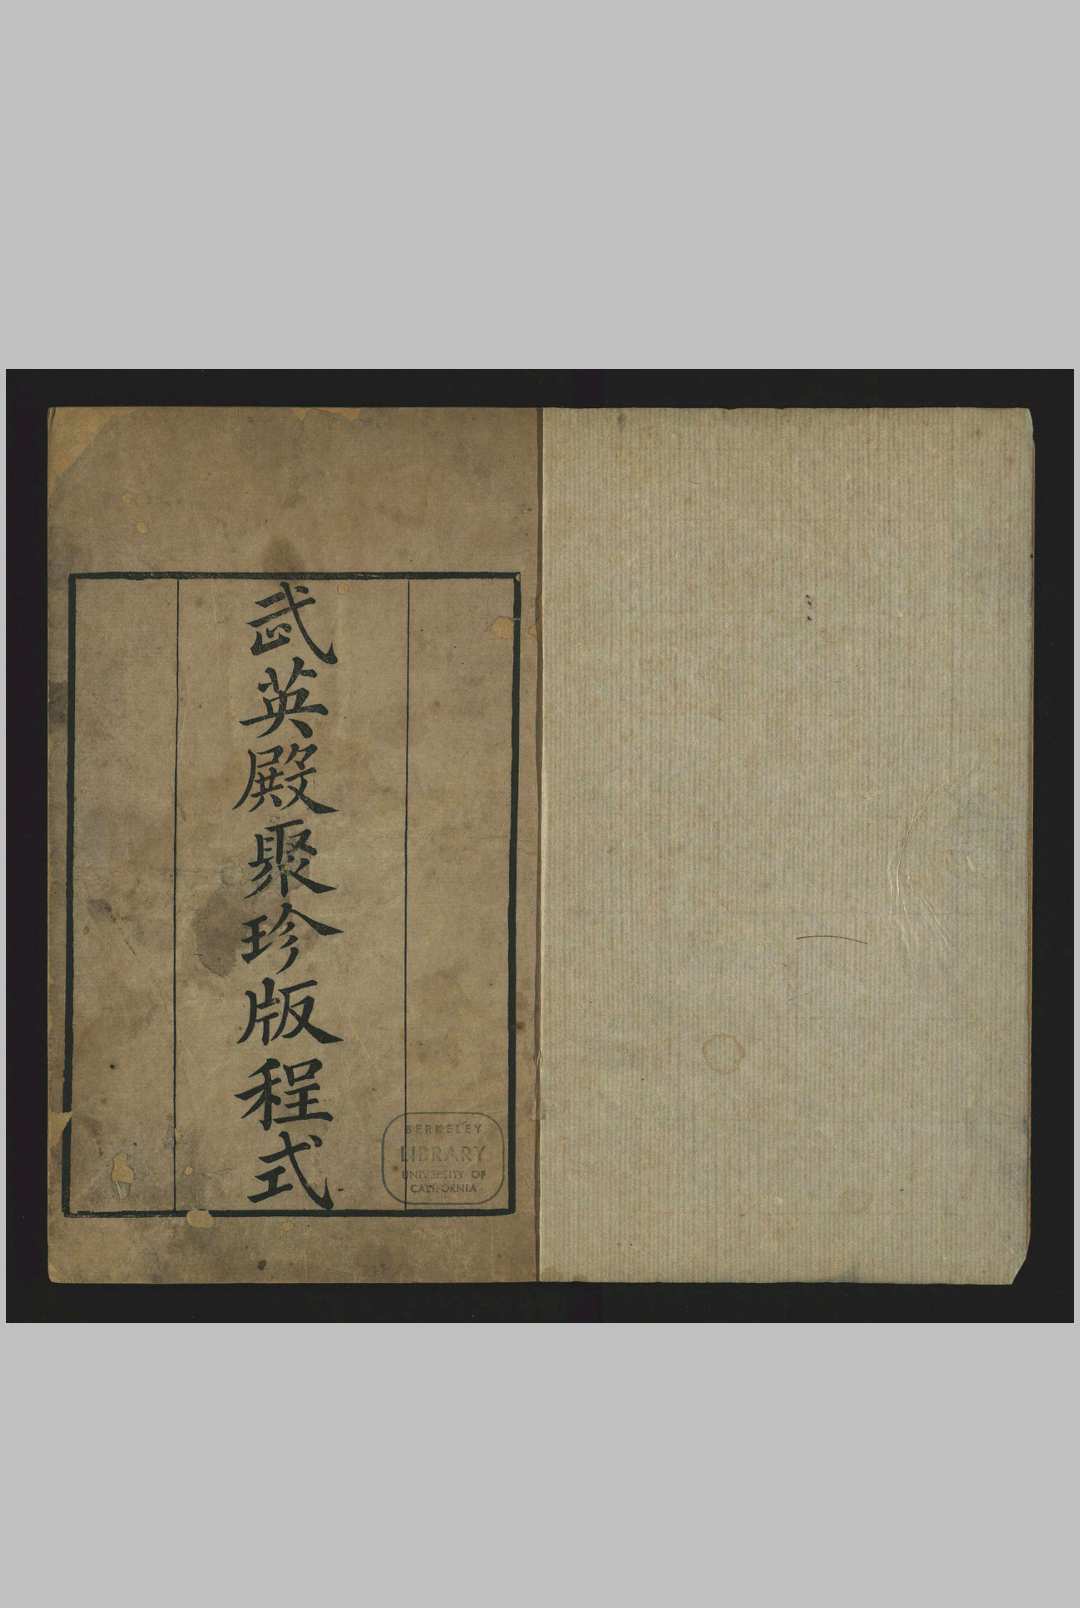 武英殿聚珍版程式
BERKELEY
LIBRARY
UNIVERSITY OF
CALIFORNIA